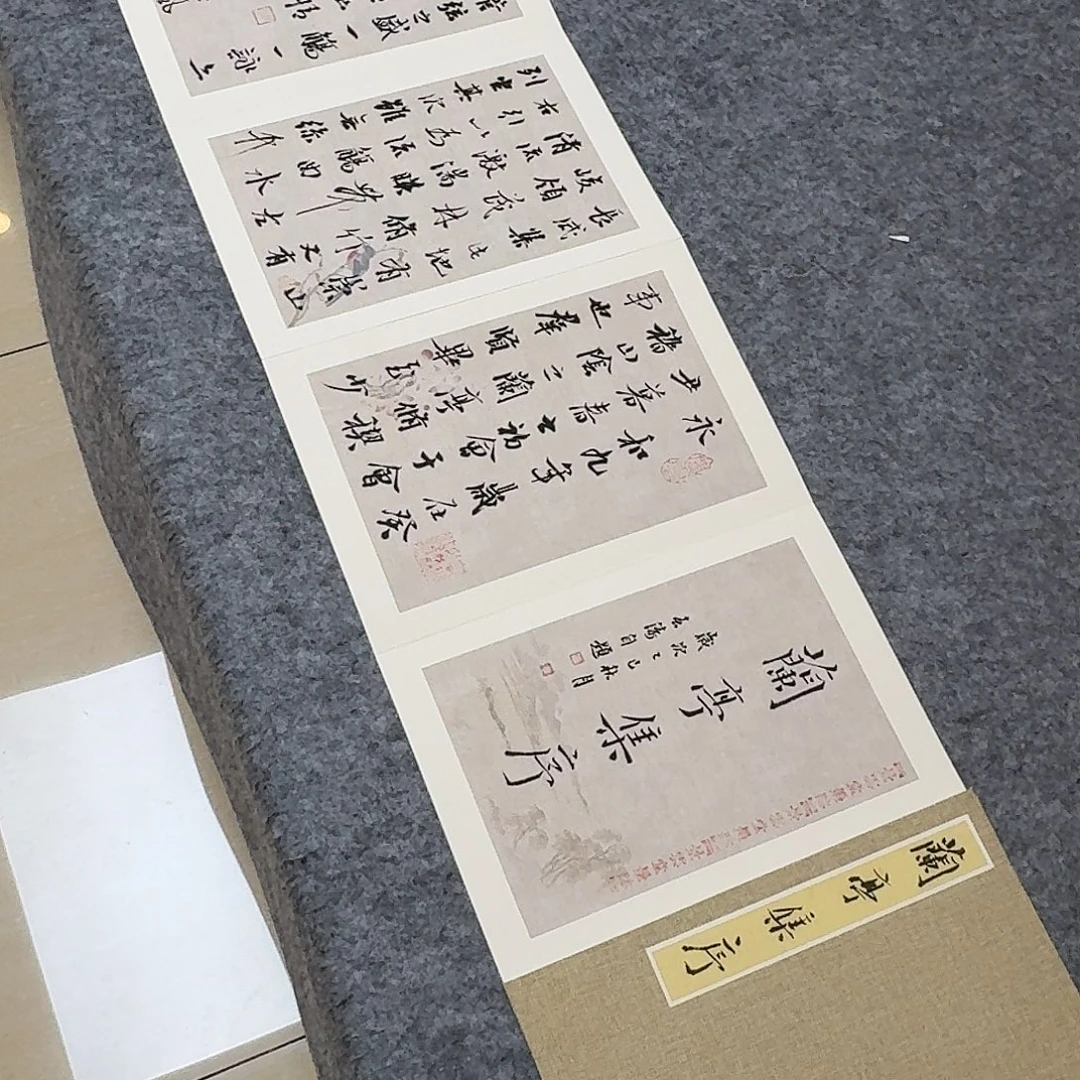 蘭亭集序
蘭亭集序
歲次乙巳秋月
濤自題
永和九年歲在癸
丑暮春之初會于會
稽山陰之蘭亭脩禊
事也群賢畢至少
長咸集此地有崇山
峻領茂林脩竹又有
清流激湍暎帶左
右引以為流觴曲水
列坐其次雖無絲竹
管弦之盛一觴一詠
情